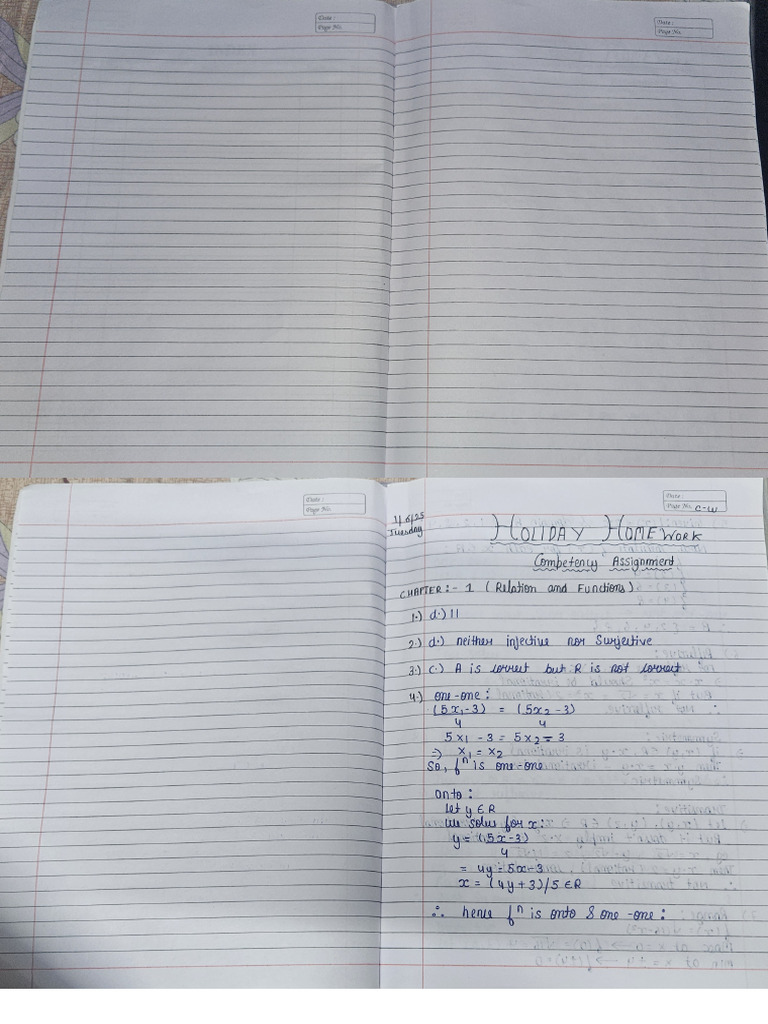 Date :
Page No.
Date :
Page No.
Date :
Page No.
Date :
Page No. C-W
1/6/25
Tuesday
HOLIDAY HOME WORK
Competency Assignment
CHAPTER :- 1 ( Relation and Functions )
1.) d.) 11
2.) d.) neither injective nor Surjective
3.) c.) A is correct but R is not correct
4.) one-one :
(5x1-3) = (5x2-3)
4 4
5x1 - 3 = 5x2 - 3
=> x1 = x2
So, fn is one-one
onto :
let y ∈ R
we solve for x:
y = (5x-3)
4
= 4y = 5x-3
x = (4y+3)/5 ∈R
∴ hence fn is onto & one-one :